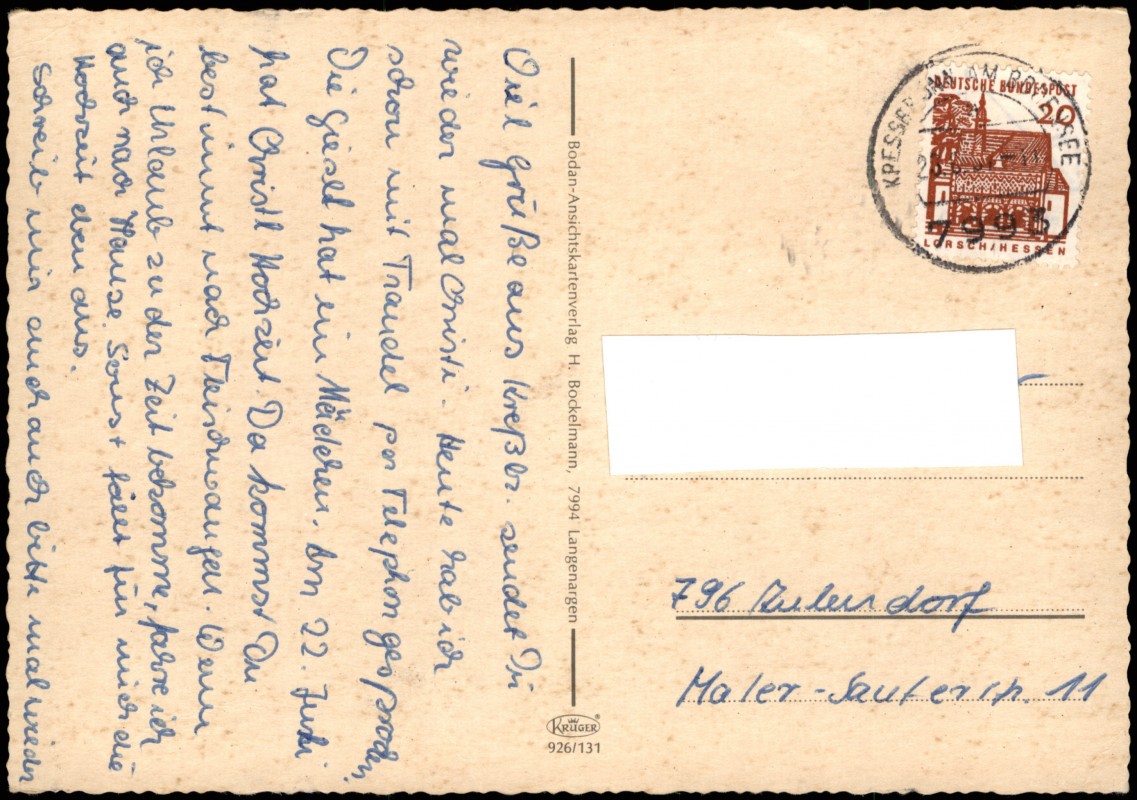 Viel Grüße aus Kreßbr. sendet Dir
wieder mal Christi - Heute hab ich
schon mit Traudel per Telephon gesprochen,
Die Gisela hat ein Mädchen. Am 22. Juni
hat Christl Hochzeit. Da kommst Du
bestimmt nach Fleischwangen. Wenn
ich Urlaub zu der Zeit bekomme, fahre ich
auch nach Hause. Sonst fällt für mich die
Hochzeit eben aus.
Schreib mir auch auch bitte mal wieder
Bodan-Ansichtskartenverlag H. Bockelmann, 7994 Langenargen
KRÜGER®
926/131
DEUTSCHE BUNDESPOST
20
LORSCH/HESSEN
KRESSBRONN AM BODENSEE
7993
796 Aulendorf
Maler-Sauterstr. 11